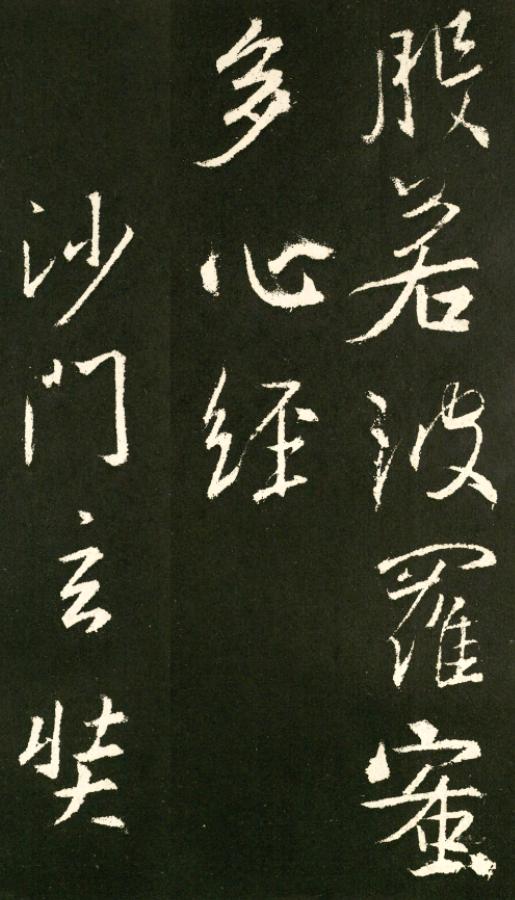 般若波羅蜜
多心經
沙門玄奘